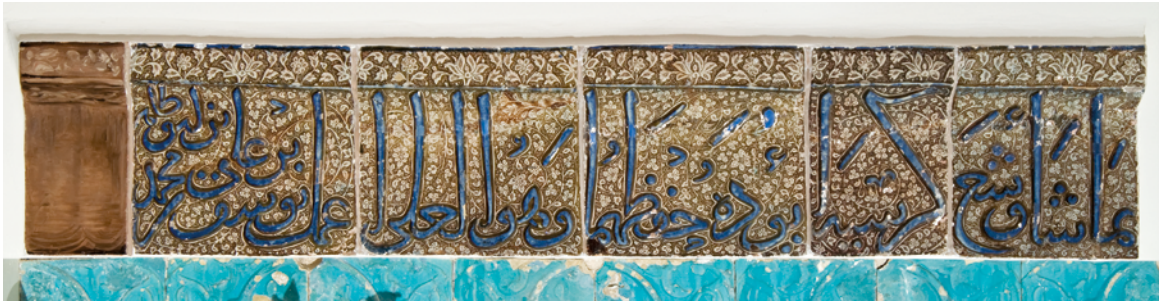 بما شاء وسع كرسيه يؤده حفظهما وهو العلي عمل يوسف بن علي بن محمد بن ابي